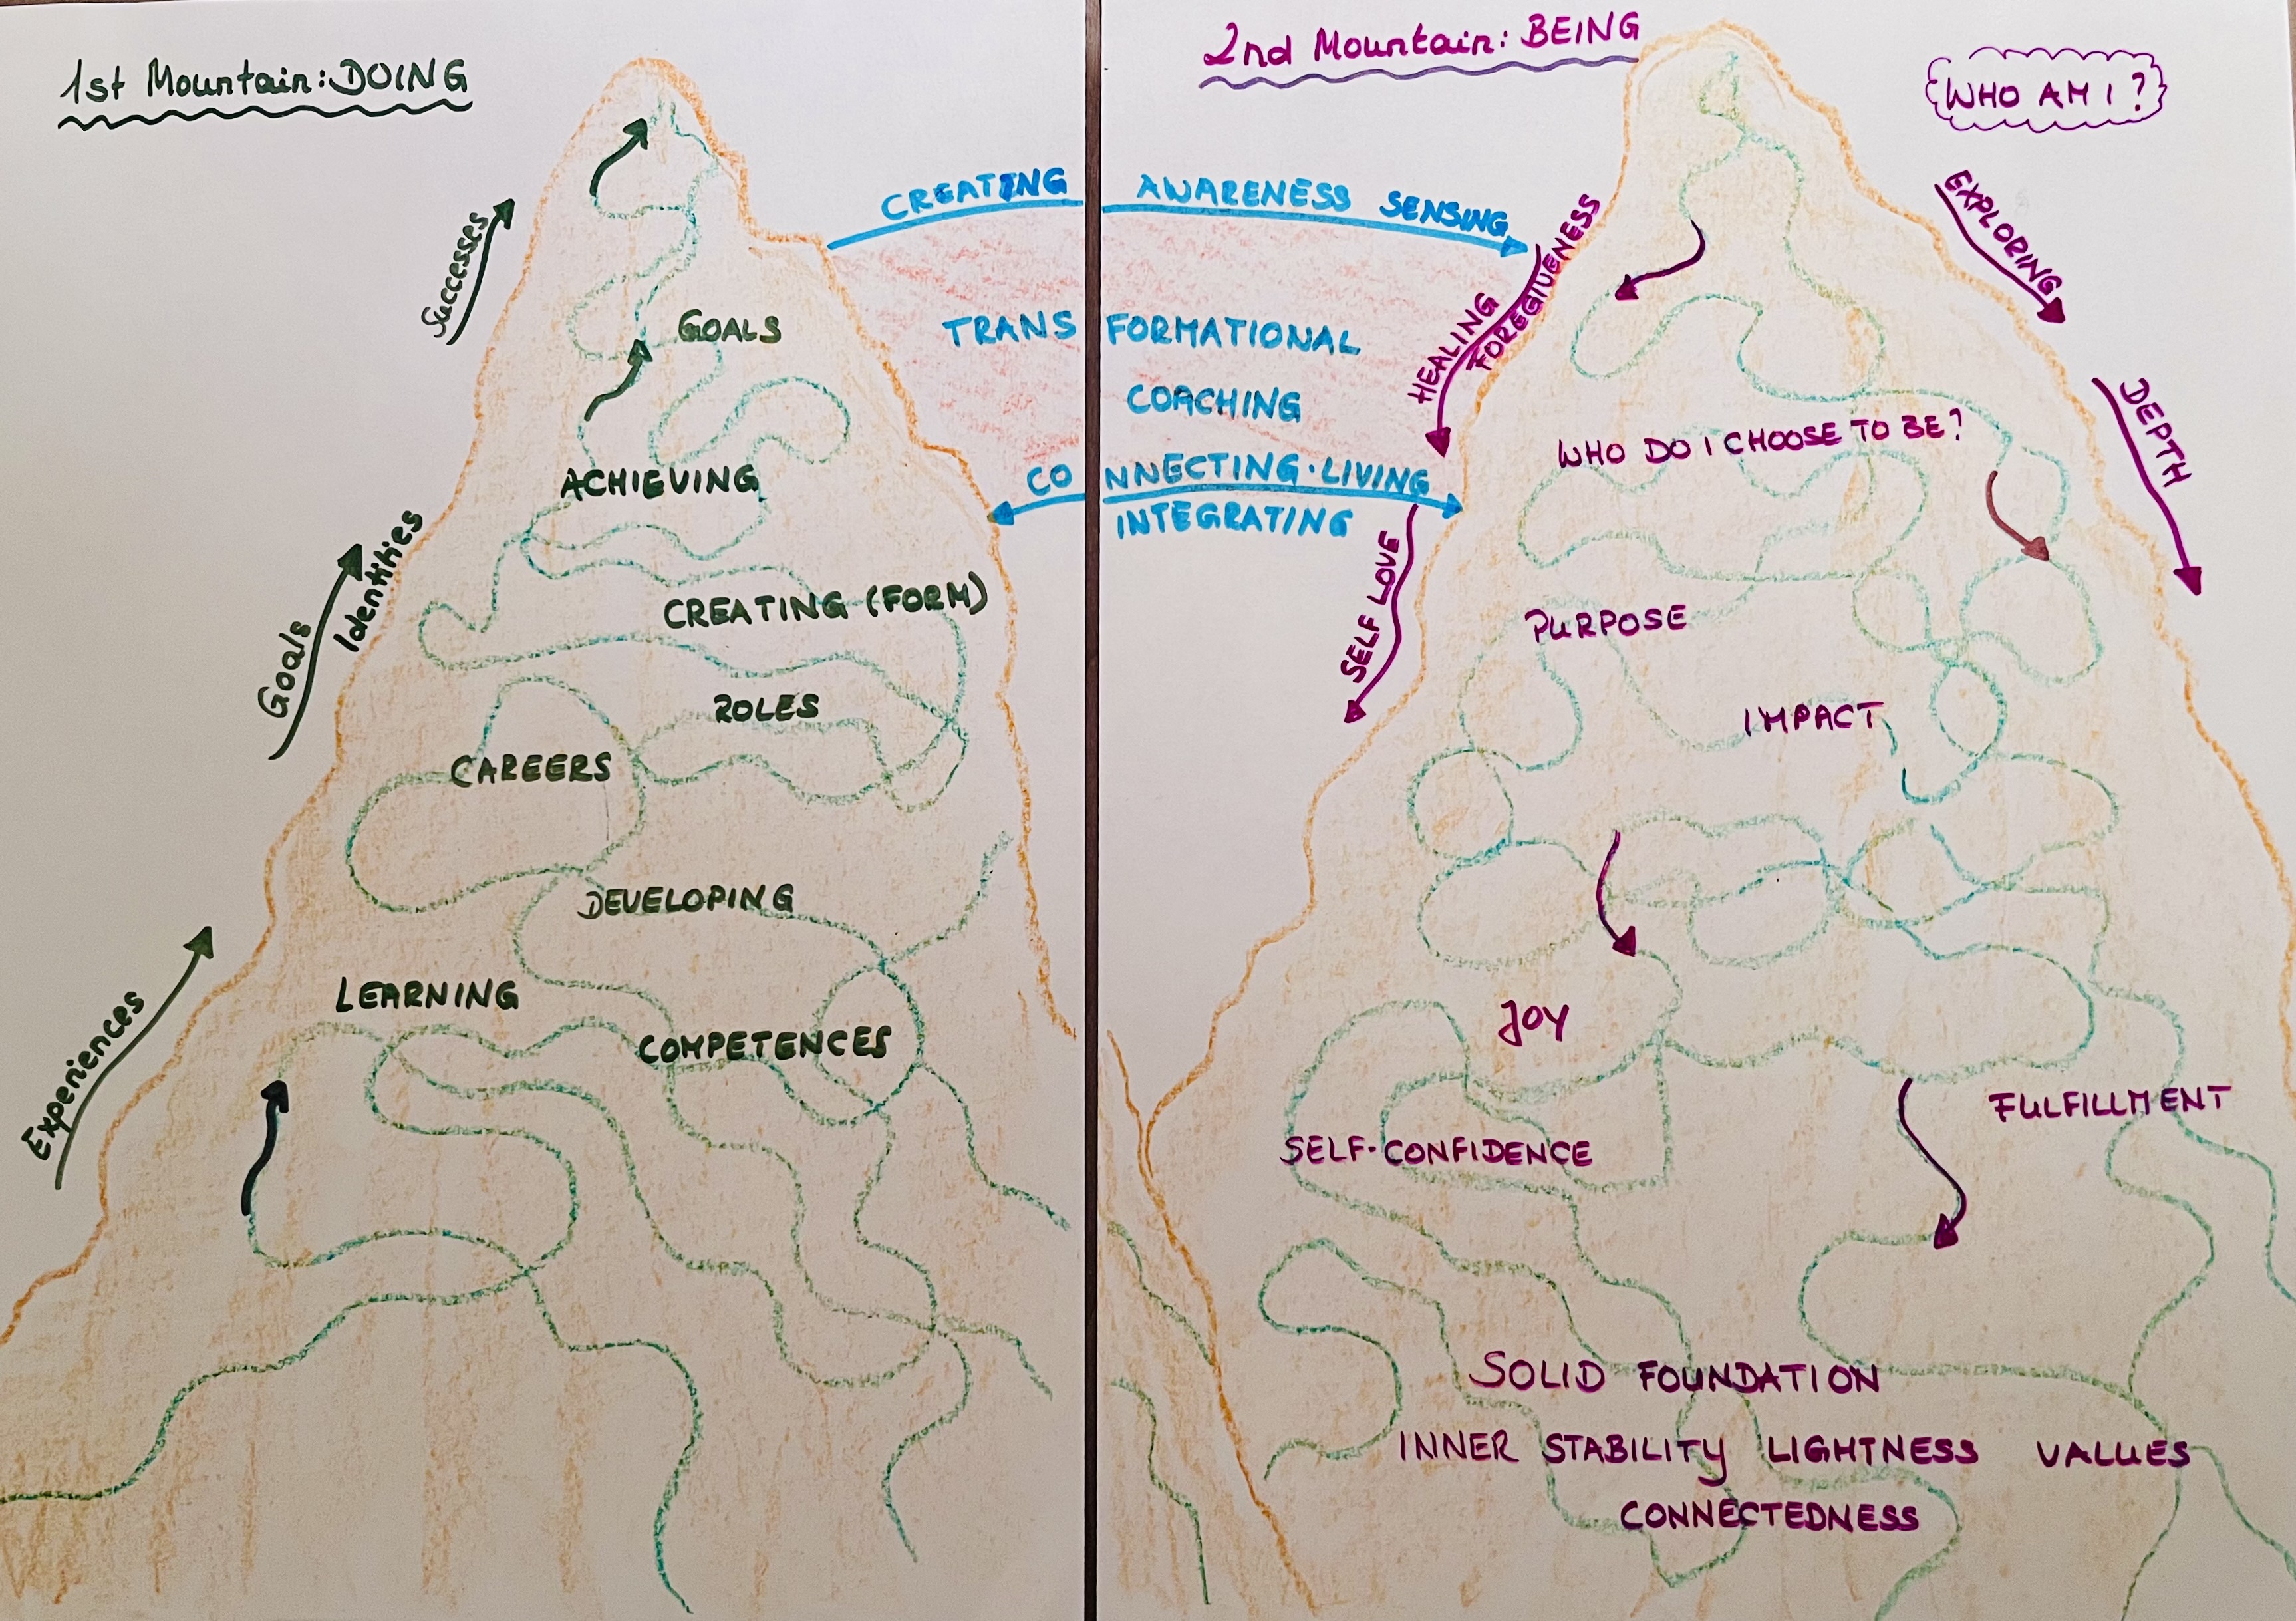 1st Mountain: DOING
Successes
GOALS
ACHIEVING
Goals
Identities
CREATING (FORM)
ROLES
CAREERS
DEVELOPING
Experiences
LEARNING
COMPETENCES
CREATING AWARENESS SENSING
TRANSFORMATIONAL
COACHING
CONNECTING · LIVING
INTEGRATING
2nd Mountain: BEING
WHO AM I?
EXPLORING
DEPTH
HEALING
FOREGIVENESS
SELF LOVE
WHO DO I CHOOSE TO BE?
PURPOSE
IMPACT
JOY
FULFILLMENT
SELF-CONFIDENCE
SOLID FOUNDATION
INNER STABILITY LIGHTNESS VALUES
CONNECTEDNESS